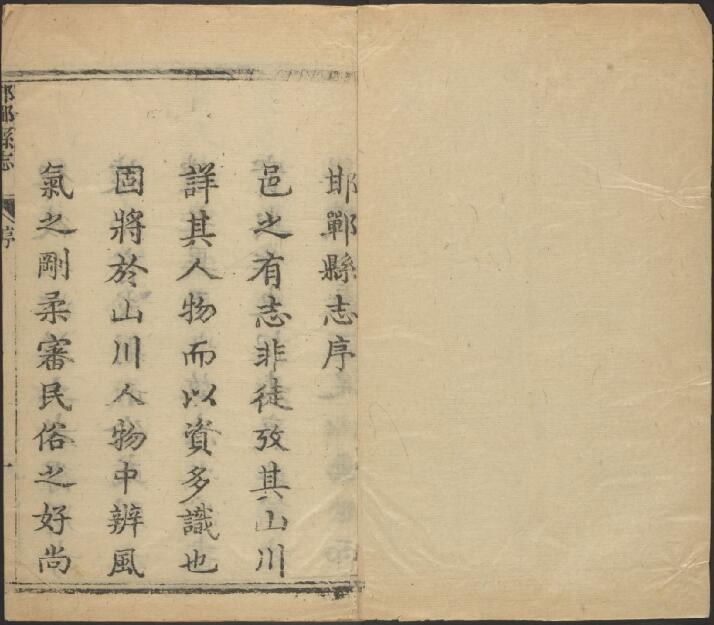 邯鄲縣志序
邑之有志非徒攷其山川
詳其人物而以資多識也
固將於山川人物中辨風
氣之剛柔審民俗之好尚
邯鄲縣志
序
一